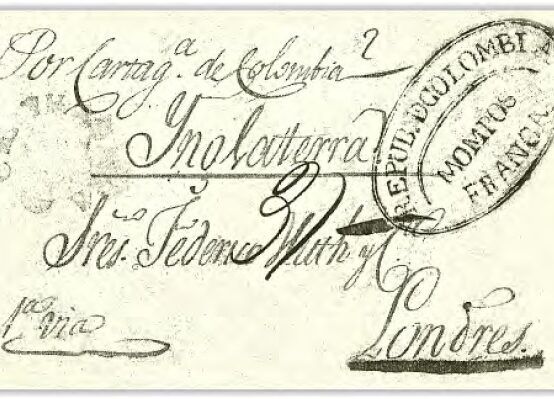 Por Cartag.ª de Colombia
Inglaterra
REPUB. D COLOMBIA
MOMPOS
FRANCA
Sres. Federico Huth y C.
1ª via
Londres.